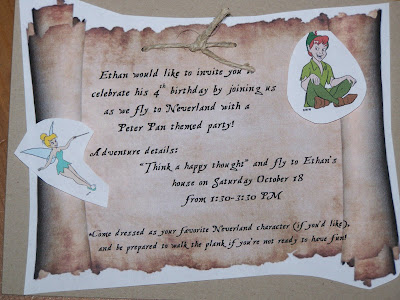 Ethan would like to invite you to
celebrate his 4th birthday by joining us
as we fly to Neverland with a
Peter Pan themed party!
Adventure details:
"Think a happy thought" and fly to Ethan's
house on Saturday October 18
from 1:30-3:30 PM
*Come dressed as your favorite Neverland character (if you'd like),
and be prepared to walk the plank if you're not ready to have fun!